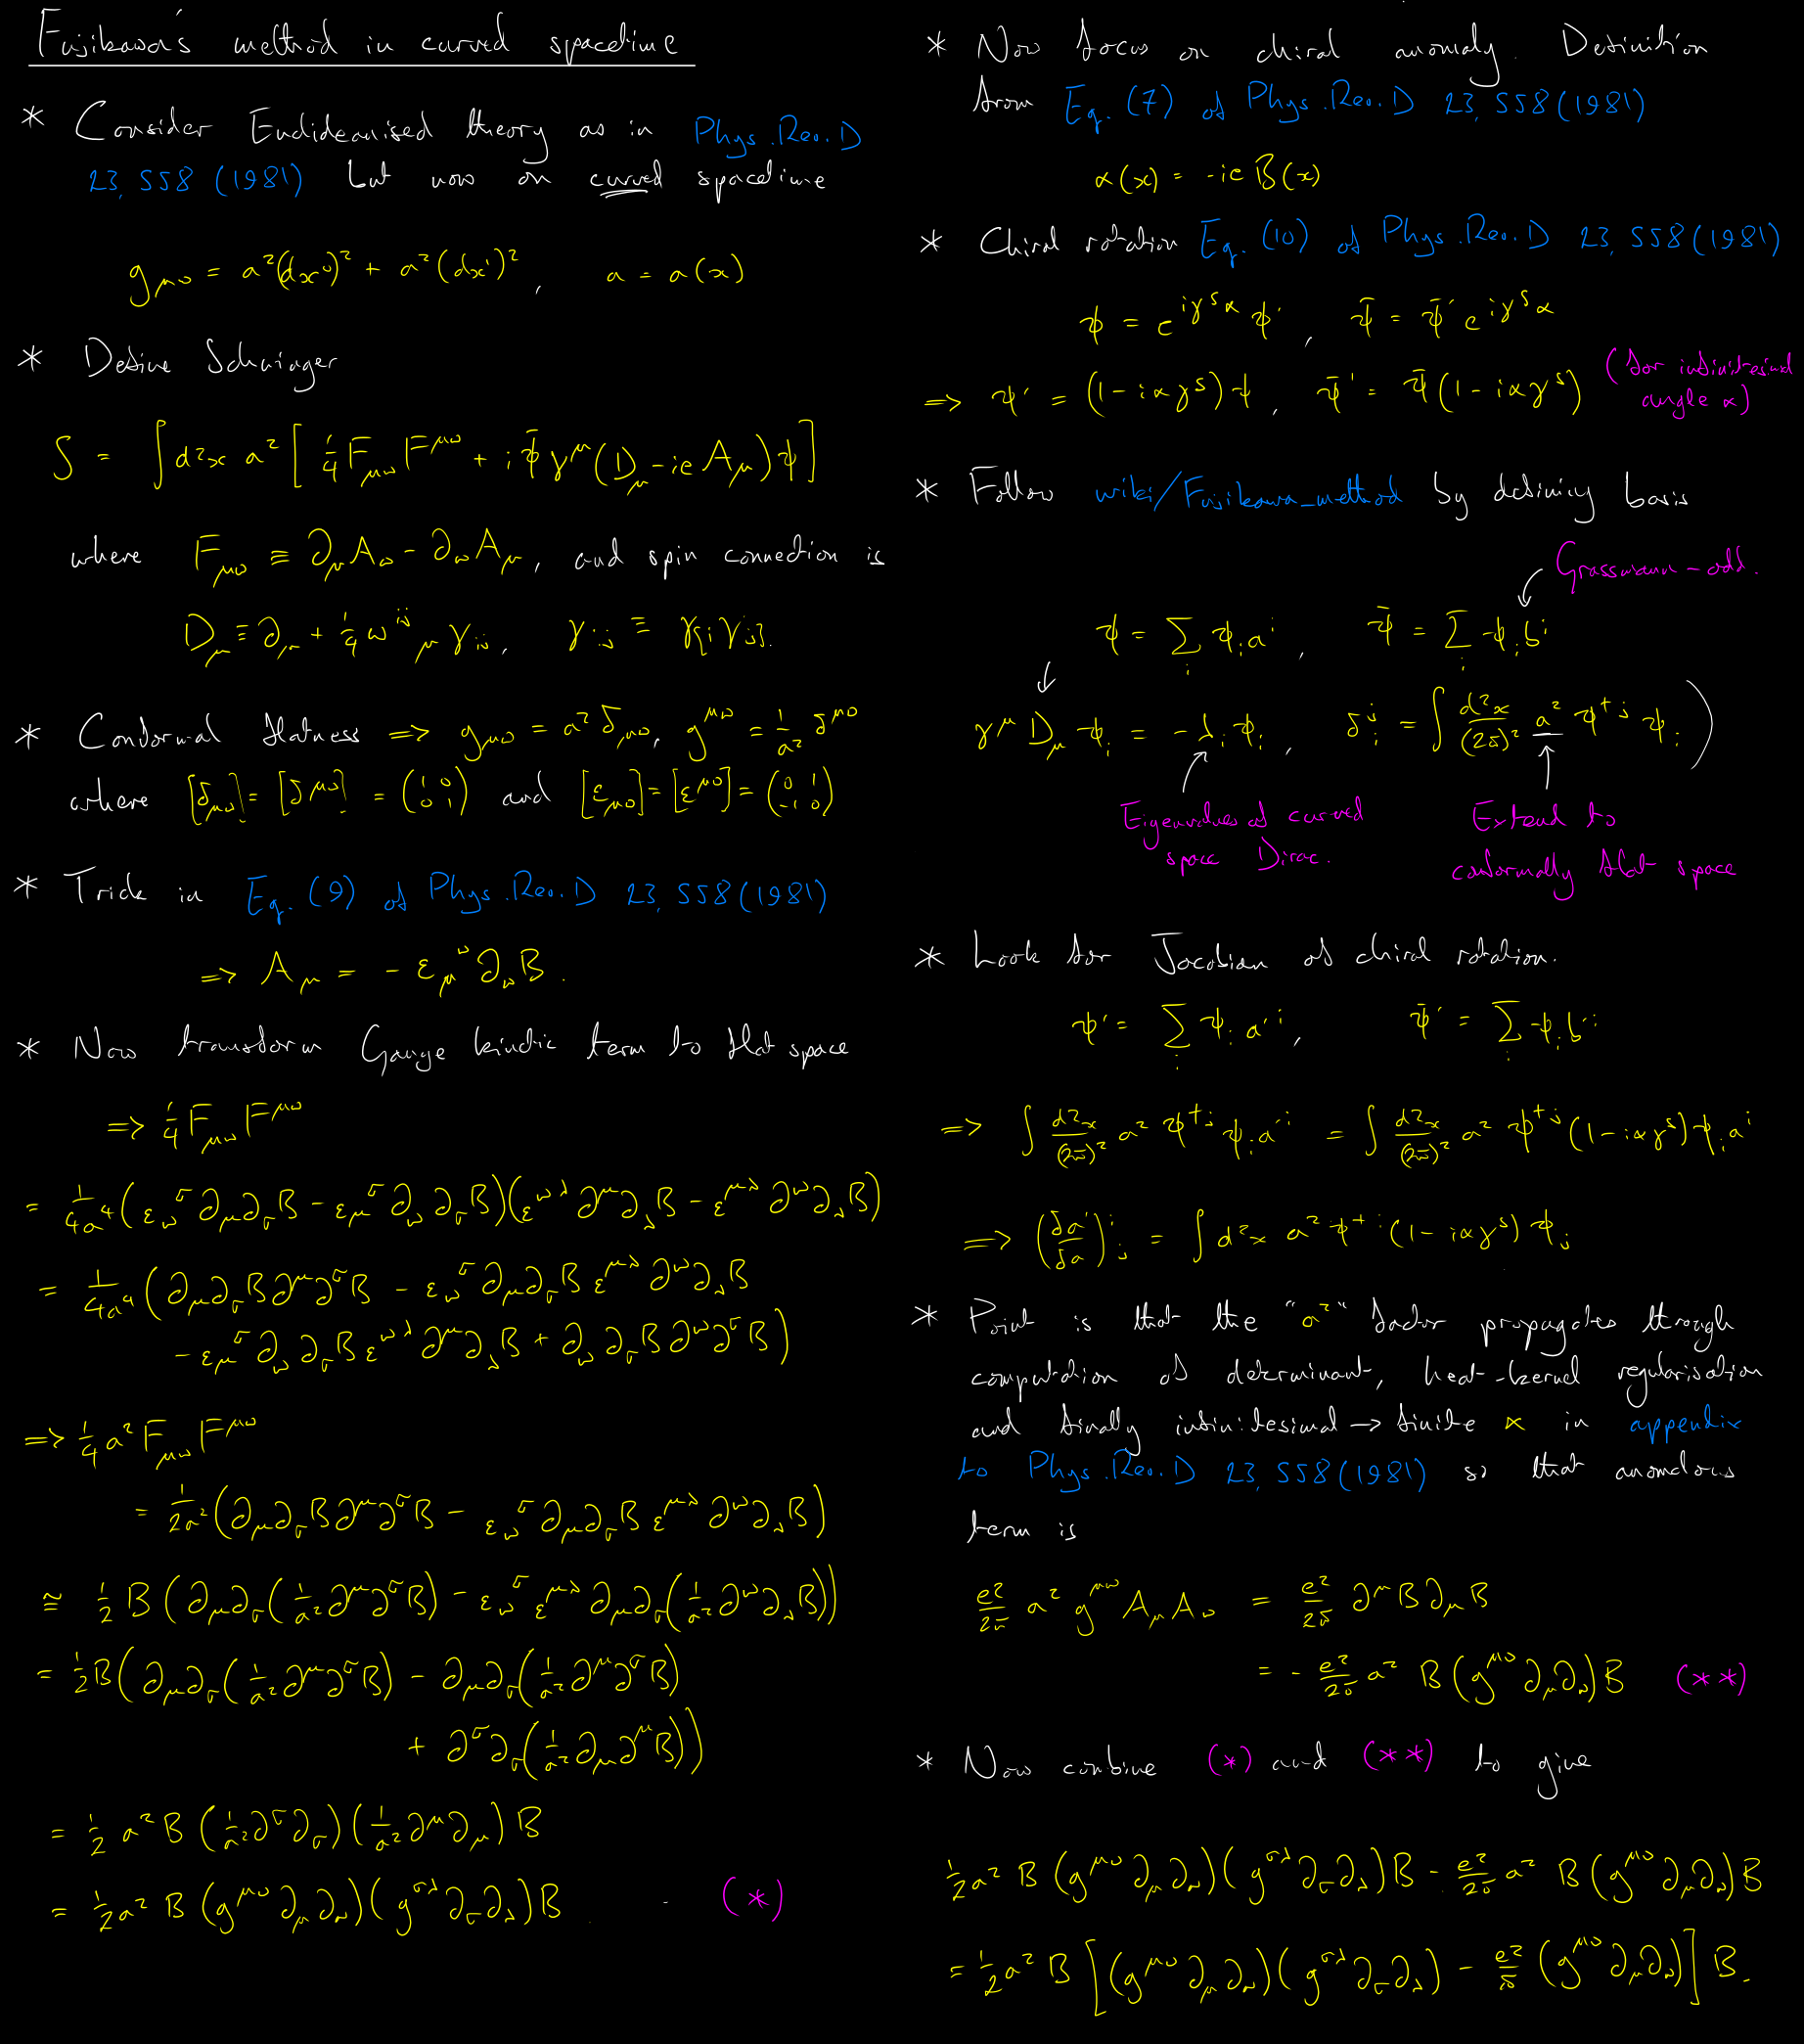 Fujikawa's method in curved spacetime
* Consider Euclideanised theory as in Phys.Rev.D
23, 558 (1981) but now on curved spacetime
g_μν = a²(dx⁰)² + a²(dx¹)², a = a(x)
* Define Schwinger
S = ∫d²x a² [ ¼ F_μν F^μν + i ψ̄ γ^μ (D_μ - ie A_μ) ψ ]
where F_μν ≡ ∂_μ A_ν - ∂_ν A_μ, and spin connection is
D_μ ≡ ∂_μ + ¼ ω^ij_μ γ_ij, γ_ij ≡ γ_[i γ_j].
* Conformal flatness => g_μν = a² δ_μν, g^μν = 1/a² δ^μν
where [δ_μν] = [δ^μν] = (1 0 0 1) and [ε_μν] = [ε^μν] = (0 1 -1 0)
* Trick in Eq. (9) of Phys.Rev.D 23, 558 (1981)
=> A_μ = - ε_μ^ν ∂_ν B.
* Now transform Gauge kinetic term to flat space
=> ¼ F_μν F^μν
= 1/4a⁴ (ε_ν^σ ∂_μ ∂_σ B - ε_μ^σ ∂_ν ∂_σ B)(ε^νλ ∂^μ ∂_λ B - ε^μλ ∂^ν ∂_λ B)
= 1/4a⁴ (∂_μ ∂_σ B ∂^μ ∂^σ B - ε_ν^σ ∂_μ ∂_σ B ε^μλ ∂^ν ∂_λ B
- ε_μ^σ ∂_ν ∂_σ B ε^νλ ∂^μ ∂_λ B + ∂_ν ∂_σ B ∂^ν ∂^σ B)
=> ¼ a² F_μν F^μν
= 1/2a² (∂_μ ∂_σ B ∂^μ ∂^σ B - ε_ν^σ ∂_μ ∂_σ B ε^μλ ∂^ν ∂_λ B)
≅ ½ B (∂_μ ∂_σ (1/a² ∂^μ ∂^σ B) - ε_ν^σ ε^μλ ∂_μ ∂_σ (1/a² ∂^ν ∂_λ B))
= ½ B (∂_μ ∂_σ (1/a² ∂^μ ∂^σ B) - ∂_μ ∂_σ (1/a² ∂^μ ∂^σ B)
+ ∂^σ ∂_σ (1/a² ∂_μ ∂^μ B))
= ½ a² B (1/a² ∂^σ ∂_σ)(1/a² ∂^μ ∂_μ) B
= ½ a² B (g^μν ∂_μ ∂_ν)(g^σλ ∂_σ ∂_λ) B (*)
* Now focus on chiral anomaly. Definition
from Eq. (7) of Phys.Rev.D 23, 558 (1981)
α(x) = -ie B(x)
* Chiral rotation Eq. (10) of Phys.Rev.D 23, 558 (1981)
ψ = e^{iγ⁵α} ψ', ψ̄ = ψ̄' e^{iγ⁵α}
=> ψ' = (1 - iαγ⁵)ψ, ψ̄' = ψ̄(1 - iαγ⁵) (for infinitesimal
angle α)
* Follow wiki/Fujikawa_method by defining basis
Grassmann-odd.
ψ = Σ_i ψ_i a^i, ψ̄ = Σ_i ψ_i b^i
γ^μ D_μ ψ_i = - λ_i ψ_i, δ_i^j = ∫ d²x/(2π)² a² ψ^†j ψ_i )
Eigenvalues of curved
space Dirac.
Extend to
conformally flat space
* Look for Jacobian of chiral rotation.
ψ' = Σ_i ψ_i a'^i, ψ̄' = Σ_i ψ_i b'^i
=> ∫ d²x/(2π)² a² ψ^†j ψ_i a'^i = ∫ d²x/(2π)² a² ψ^†j (1 - iαγ⁵) ψ_i a^i
=> (δa'/δa)^i_j = ∫ d²x a² ψ^†i (1 - iαγ⁵) ψ_j
* Point is that the "a²" factor propagates through
computation of determinant, heat-kernel regularisation
and finally infinitesimal → finite α in appendix
to Phys.Rev.D 23, 558 (1981) so that anomalous
term is
e²/2π a² g^μν A_μ A_ν = e²/2π ∂^μ B ∂_μ B
= - e²/2π a² B (g^μν ∂_μ ∂_ν) B (**)
* Now combine (*) and (**) to give
½ a² B (g^μν ∂_μ ∂_ν)(g^σλ ∂_σ ∂_λ) B - e²/2π a² B (g^μν ∂_μ ∂_ν) B
= ½ a² B [(g^μν ∂_μ ∂_ν)(g^σλ ∂_σ ∂_λ) - e²/π (g^μν ∂_μ ∂_ν)] B.